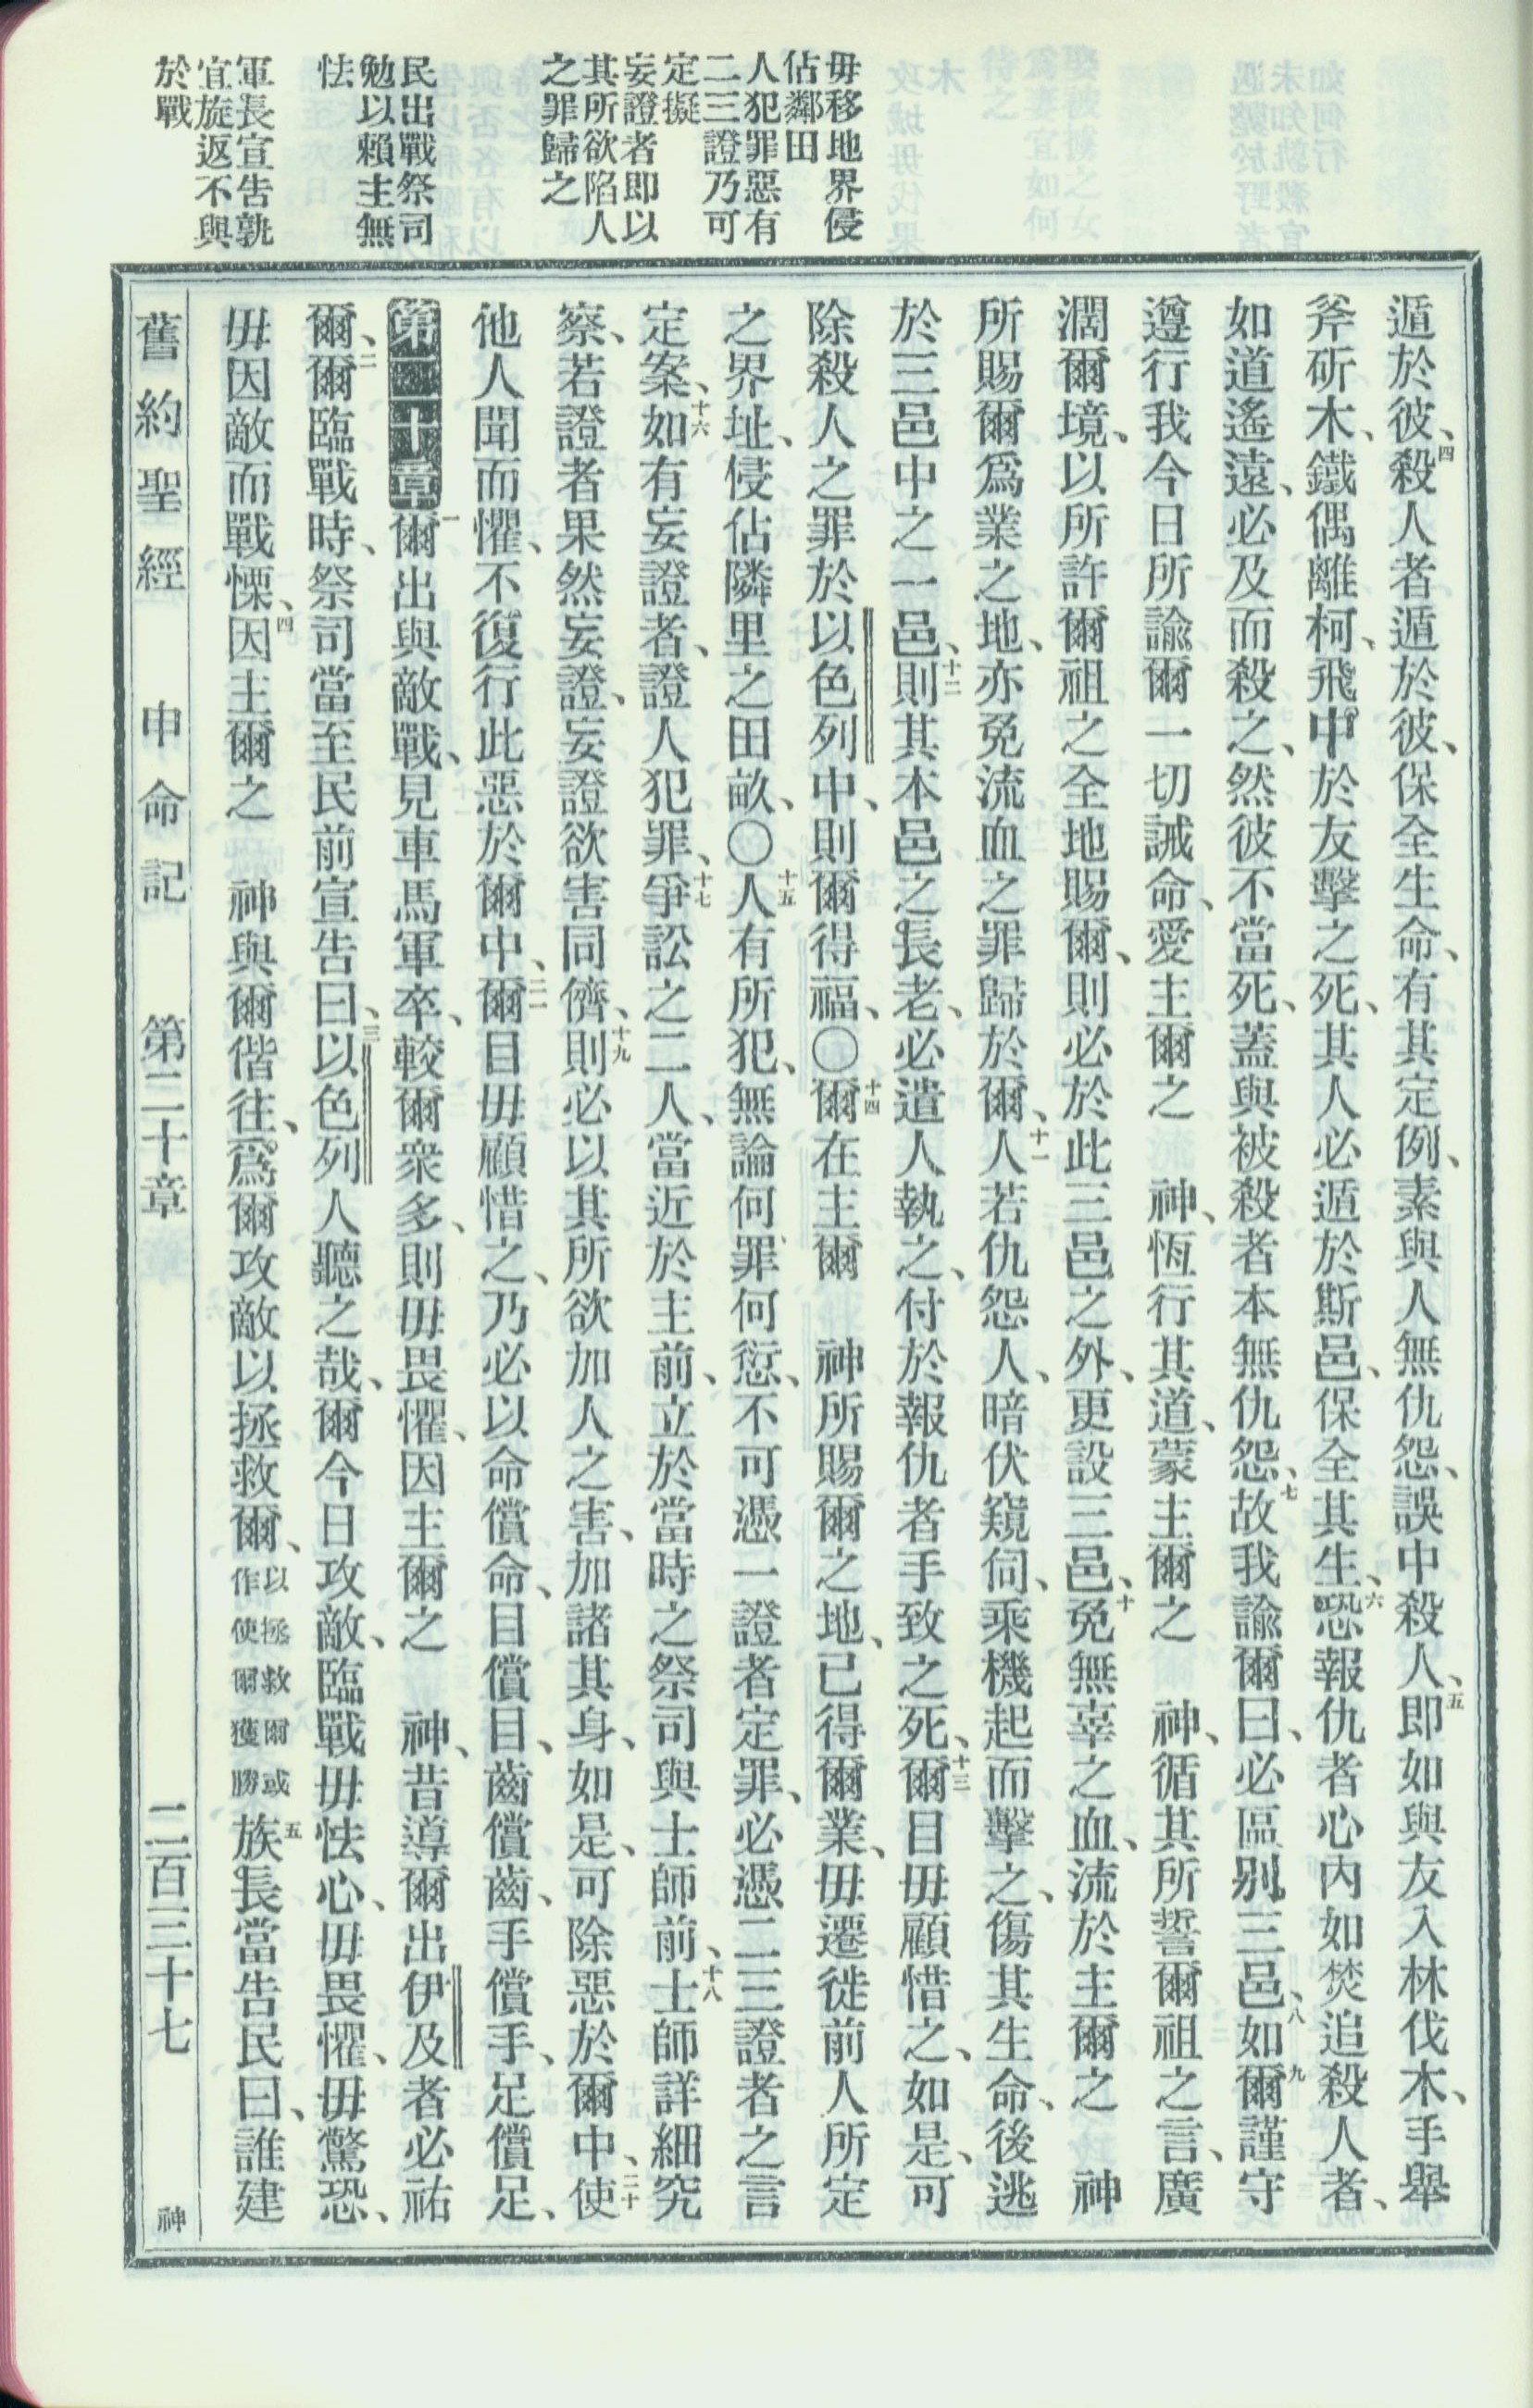 毋移地界侵
佔鄰田
人犯罪惡有
二三證乃可
定擬
妄證者即以
其所欲陷人
之罪歸之
民出戰祭司
勉以賴主無
怯
軍長宣告孰
宜旋返不與
於戰
遁於彼、四殺人者遁於彼、保全生命、有其定例、素與人無仇怨、誤中殺人、五即如與友入林伐木、手舉
斧斫木、鐵偶離柯、飛中於友擊之死、其人必遁於斯邑、保全其生、六恐報仇者心內如焚追殺人者、
如道遙遠、必及而殺之、然彼不當死、蓋與被殺者本無仇怨、七故我諭爾曰、必區別三邑、八如爾九謹守
遵行我今日所諭爾一切誡命、愛主爾之　神、恆行其道、蒙主爾之　神、循其所誓爾祖之言、廣
濶爾境、以所許爾祖之全地賜爾、則必於此三邑之外、更設三邑、十免無辜之血、流於主爾之　神
所賜爾爲業之地、亦免流血之罪歸於爾、十一人若仇怨人、暗伏窺伺、乘機起而擊之、傷其生命、後逃
於三邑中之一邑、十二則其本邑之長老、必遣人執之、付於報仇者手致之死、十三爾目毋顧惜之、如是、可
除殺人之罪於以色列中、則爾得福、〇十四爾在主爾　神所賜爾之地、已得爾業、毋遷徙前人所定
之界址、侵佔隣里之田畝、〇十五人有所犯、無論何罪何愆、不可憑一證者定罪、必憑二三證者之言
定案、十六如有妄證者、證人犯罪、十七爭訟之二人、當近於主前、立於當時之祭司與士師前、十八士師詳細究
察、若證者果然妄證、妄證欲害同儕、十九則必以其所欲加人之害、加諸其身、如是、可除惡於爾中、二十使
他人聞而懼、不復行此惡於爾中、二一爾目毋顧惜之、乃必以命償命、目償目、齒償齒、手償手、足償足、
第二十章一爾出與敵戰、見車馬軍卒、較爾衆多、則毋畏懼、因主爾之　神、昔導爾出伊及者必祐
爾、二爾臨戰時、祭司當至民前宣告曰、三以色列人聽之哉、爾今日攻敵、臨戰毋怯心、毋畏懼、毋驚恐、
毋因敵而戰慄、四因主爾之　神與爾偕往、爲爾攻敵以拯救爾、以拯救爾或作使爾獲勝五族長當告民曰、誰建
舊約聖經　申命記　第二十章　二百三十七　神